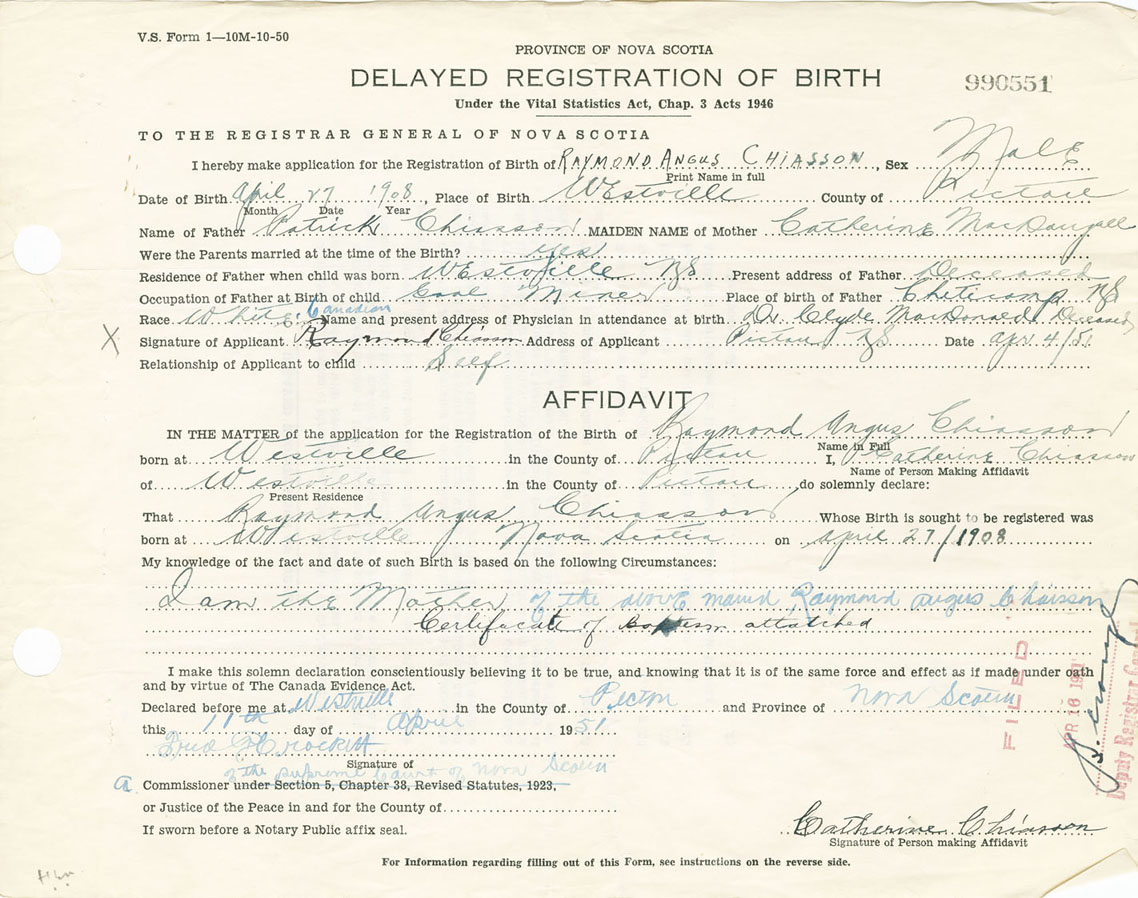 V.S. Form 1—10M-10-50
PROVINCE OF NOVA SCOTIA
DELAYED REGISTRATION OF BIRTH
990551
Under the Vital Statistics Act, Chap. 3 Acts 1946
TO THE REGISTRAR GENERAL OF NOVA SCOTIA
I hereby make application for the Registration of Birth of RAYMOND ANGUS CHIASSON, Sex Male
Print Name in full
Date of Birth April 27 1908, Place of Birth Westville County of Pictou
Month Date Year
Name of Father Patrick Chiasson MAIDEN NAME of Mother Catherine MacDougall
Were the Parents married at the time of the Birth? yes
Residence of Father when child was born Westville NS Present address of Father Deceased
Occupation of Father at Birth of child Coal Miner Place of birth of Father Cheticamp NS
Race White Canadian Name and present address of Physician in attendance at birth Dr Clyde MacDonald Deceased
X Signature of Applicant Raymond Chiasson Address of Applicant Pictou NS Date Apr 4/51
Relationship of Applicant to child Self
AFFIDAVIT
IN THE MATTER of the application for the Registration of the Birth of Raymond Angus Chiasson
Name in Full
born at Westville in the County of Pictou I, Catherine Chiasson
Name of Person Making Affidavit
of Westville in the County of Pictou, do solemnly declare:
Present Residence
That Raymond Angus Chiasson Whose Birth is sought to be registered was
born at Westville Nova Scotia on April 27/1908
My knowledge of the fact and date of such Birth is based on the following Circumstances:
I am the Mother of the above Raymond Angus Chaisson
Certificate of attatched
I make this solemn declaration conscientiously believing it to be true, and knowing that it is of the same force and effect as if made under oath
and by virtue of The Canada Evidence Act.
Declared before me at Westville in the County of Picton and Province of Nova Scotia
this 11th day of April 1951
Fred H Crockett
Signature of
of the Supreme Court of Nova Scotia
a Commissioner under Section 5, Chapter 38, Revised Statutes, 1923.
or Justice of the Peace in and for the County of
If sworn before a Notary Public affix seal.
Catherine Chiasson
Signature of Person making Affidavit
For Information regarding filling out of this Form, see instructions on the reverse side.
FILED
APR 16 1951
Deputy Registrar General